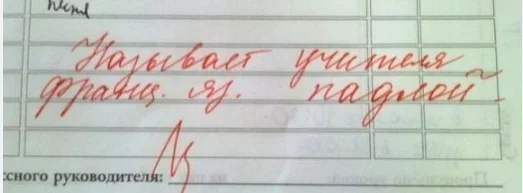 Называет учителя
франц. яз. падлой -
ссного руководителя: